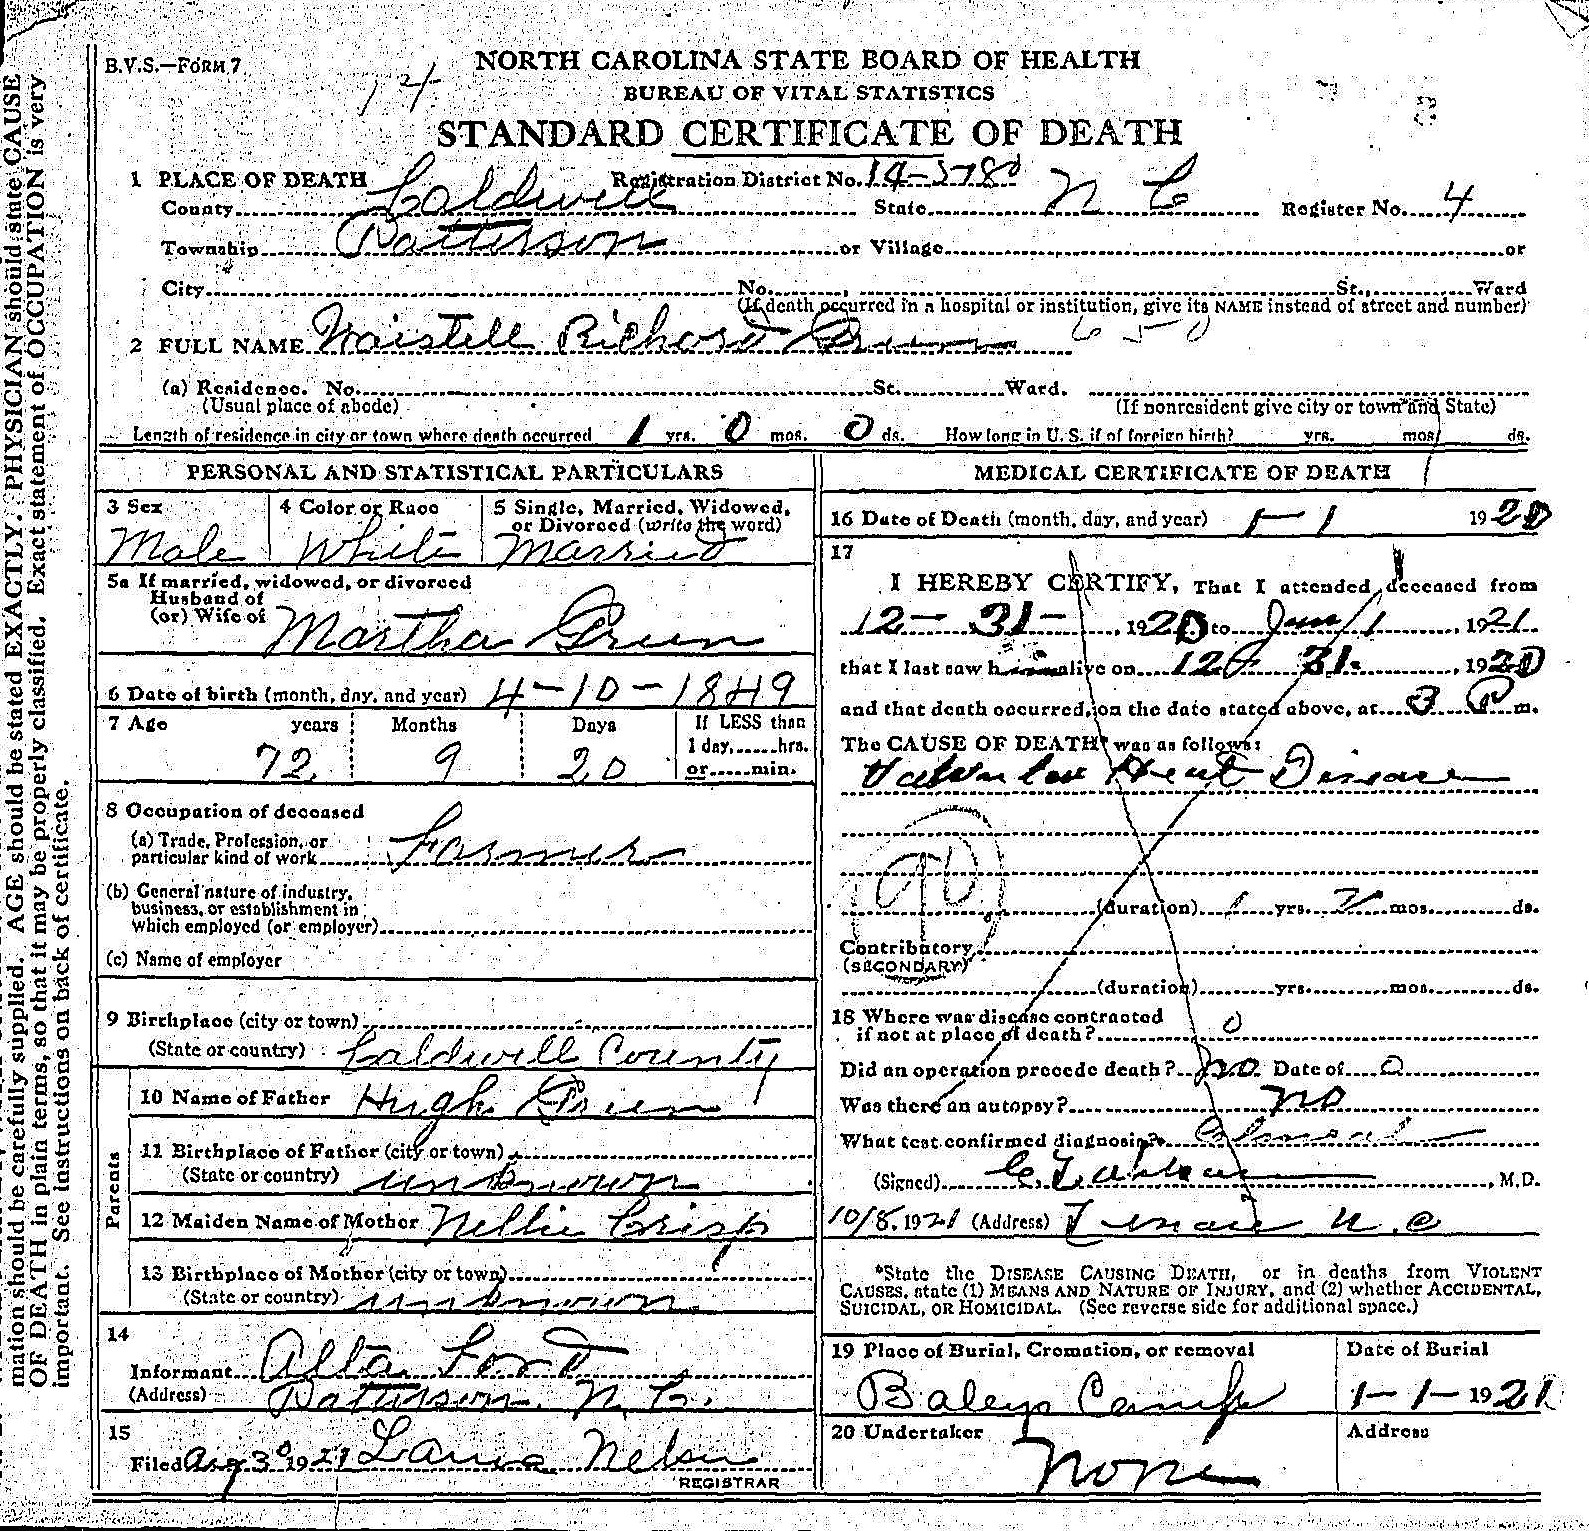 B.V.S.—FORM 7
14
NORTH CAROLINA STATE BOARD OF HEALTH
BUREAU OF VITAL STATISTICS
STANDARD CERTIFICATE OF DEATH
1 PLACE OF DEATH Registration District No. 14-5780
County Caldwell State N C Register No. 4
Township Patterson or Village or
City No. St., Ward
(If death occurred in a hospital or institution, give its NAME instead of street and number)
2 FULL NAME Richard Green 650
(a) Residence. No. St. Ward.
(Usual place of abode) (If nonresident give city or town and State)
Length of residence in city or town where death occurred 1 yrs. 0 mos. 0 ds. How long in U. S. if of foreign birth? yrs. mos. ds.
PERSONAL AND STATISTICAL PARTICULARS
3 Sex
Male
4 Color or Race
White
5 Single, Married, Widowed,
or Divorced (write the word)
Married
5a If married, widowed, or divorced
Husband of
(or) Wife of Martha Green
6 Date of birth (month, day, and year) 4-10-1849
7 Age years Months Days If LESS than
1 day, hrs.
72 9 20 or min.
8 Occupation of deceased
(a) Trade, Profession, or
particular kind of work Farmer
(b) General nature of industry,
business, or establishment in
which employed (or employer)
(c) Name of employer
9 Birthplace (city or town)
(State or country) Caldwell County
Parents
10 Name of Father Hugh Green
11 Birthplace of Father (city or town)
(State or country) unknown
12 Maiden Name of Mother Nellie Crisp
13 Birthplace of Mother (city or town)
(State or country) unknown
14
Informant Alta Ford
(Address) Patterson N. C.
15
Filed Aug 30 1921 Nelson
REGISTRAR
MEDICAL CERTIFICATE OF DEATH
16 Date of Death (month, day, and year) 1-1 1920
17
I HEREBY CERTIFY, That I attended deceased from
12-31-, 1920 to Jan 1, 1921
that I last saw him alive on 12-31-, 1920
and that death occurred, on the date stated above, at 3 P m.
The CAUSE OF DEATH* was as follows:
Valvular Heart Disease
90
(duration) 1 yrs. mos. ds.
Contributory
(SECONDARY)
(duration) yrs. mos. ds.
18 Where was disease contracted
if not at place of death? 0
Did an operation precede death? no Date of 0
Was there an autopsy? no
What test confirmed diagnosis?
(Signed) , M.D.
10/8, 1921 (Address) Lenoir N. C
*State the DISEASE CAUSING DEATH, or in deaths from VIOLENT
CAUSES, state (1) MEANS AND NATURE OF INJURY, and (2) whether ACCIDENTAL,
SUICIDAL, OR HOMICIDAL. (See reverse side for additional space.)
19 Place of Burial, Cremation, or removal
Baleys Camp
Date of Burial
1-1-1921
20 Undertaker
None
Address
mation should be carefully supplied. AGE should be stated EXACTLY. PHYSICIAN should state CAUSE
OF DEATH in plain terms, so that it may be properly classified. Exact statement of OCCUPATION is very
important. See instructions on back of certificate.